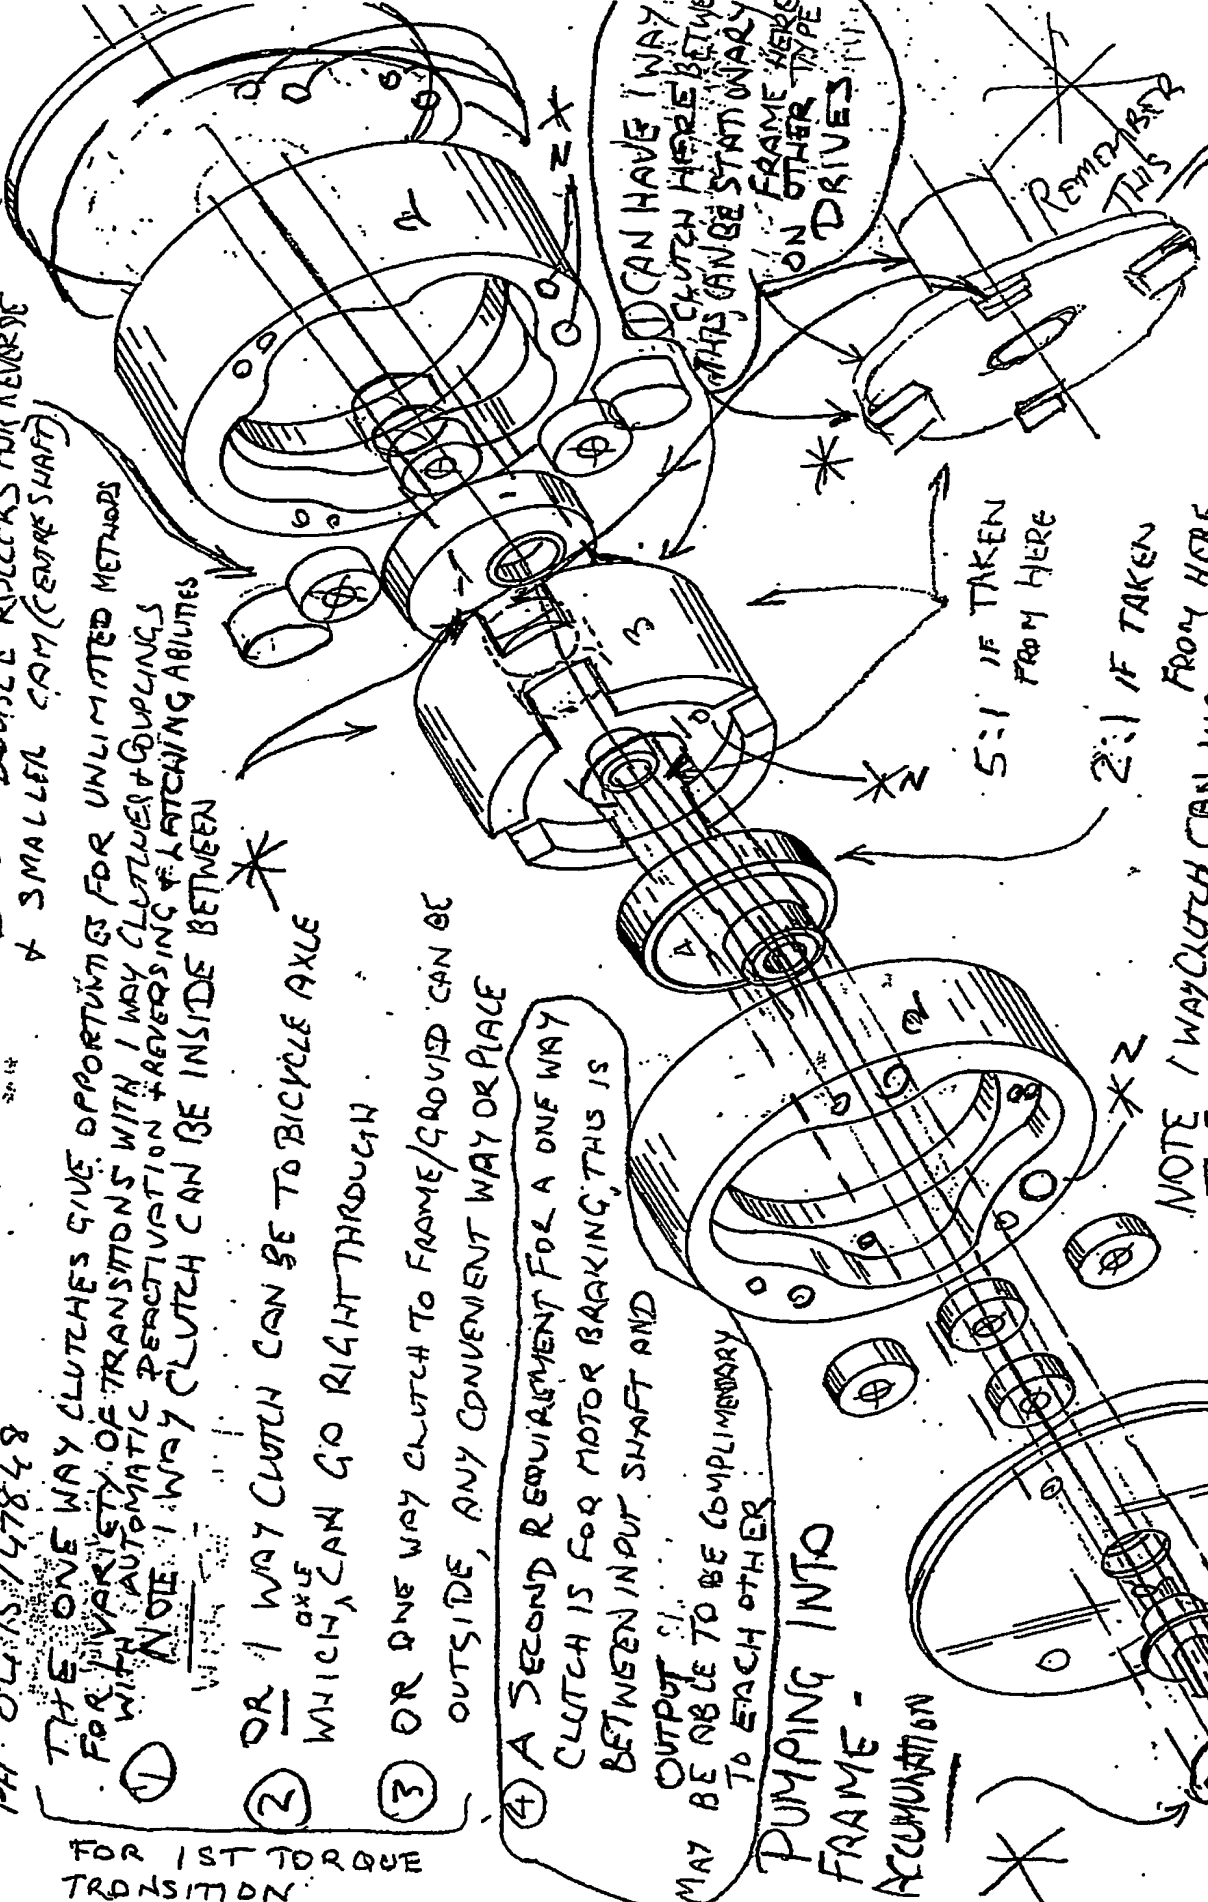 PH. 04 15/47848
THE ONE WAY CLUTCHES GIVE OPPORTUNTIES FOR UNLIMITED METHODS
FOR VARIETY OF TRANSITIONS WITH 1 WAY CLUTCHES + COUPLINGS
WITH AUTOMATIC DEACTIVATION + REVERSING & LATCHING ABILITIES
① NOTE 1 WAY CLUTCH CAN BE INSIDE BETWEEN
② OR 1 WAY CLUTCH CAN BE TO BICYCLE AXLE
WHICH AXLE CAN GO RIGHT THROUGH
③ OR ONE WAY CLUTCH TO FRAME/GROUID CAN BE
OUTSIDE, ANY CONVENIENT WAY OR PLACE
FOR 1ST TORQUE
TRANSITION
④ A SECOND REQUIREMENT FOR A ONE WAY
CLUTCH IS FOR MOTOR BRAKING, THIS IS
BETWEEN INPUT SHAFT AND
OUTPUT
MAY BE ABLE TO BE COMPLIMENTARY
TO EACH OTHER
PUMPING INTO
FRAME -
ACCUMULATION
DOUBLE ROLLERS FOR REVERSE
+ SMALLER CAM (CENTRE SHAFT)
① CAN HAVE 1 WAY
CLUTCH HERE BETWE
THIS CAN BE STATIONARY
FRAME HERE
ON OTHER TYPE
DRIVES
REMEMBER
THIS
5:1 IF TAKEN
FROM HERE
2:1 IF TAKEN
FROM HERE
NOTE 1 WAY CLUTCH CAN
2
1
3
4
2
Z
Z
Z